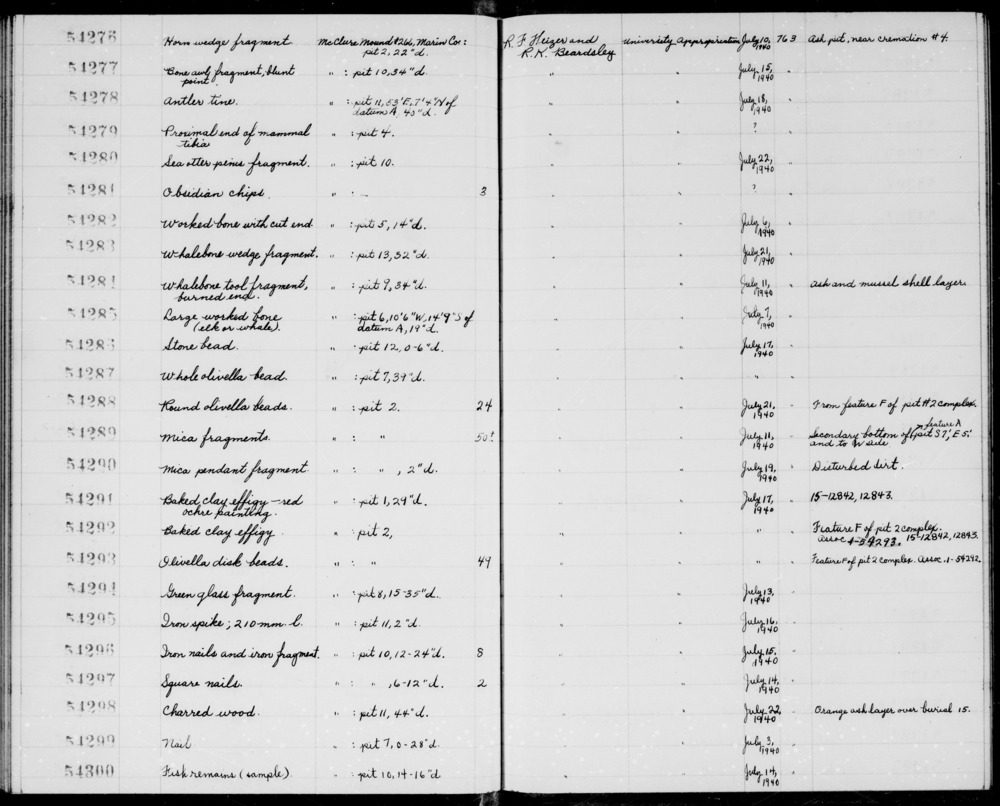 54276 Horn wedge fragment McClure Mound #266, Marin Co: R. F. Heizer and University Appropriation July 10, 763 Ash pit, near cremation #4.
pit 2, 22"d. R. K. Beardsley 1940
54277 Bone awl fragment, blunt " : pit 10, 34"d. " " July 15, "
point 1940
54278 Antler tine. " : pit 11, 53'E, 7'4"N of " " July 18, "
datum A, 40"d. 1940
54279 Proximal end of mammal " : pit 4. " " ? "
tibia
54280 Sea otter penis fragment. " : pit 10. " " July 22, "
1940
54281 Obsidian chips. " : – 3 " " ? "
54282 Worked bone with cut end " : pit 5, 14"d. " " July 6, "
1940
54283 Whalebone wedge fragment. " : pit 13, 32"d. " " July 21, "
1940
54284 Whalebone tool fragment, " : pit 9, 34"d. " " July 11, " Ash and mussel shell layer.
burned end. 1940
54285 Large worked bone " : pit 6, 10'6"W, 14'9"S of " " July 7, "
(elk or whale). datum A, 19"d. 1940
54286 Stone bead. " : pit 12, 0-6"d. " " July 17, "
1940
54287 Whole olivella bead. " : pit 7, 39"d. " " " "
54288 Round olivella beads. " : pit 2. 24 " " July 21, " From feature F of pit #2 complex.
1940
54289 Mica fragments. " : " 50± " " July 11, " Secondary bottom of feature A pit S7', E5'
1940 and to W side
54290 Mica pendant fragment " : " , 2"d. " " July 19, " Disturbed dirt.
1940
54291 Baked clay effigy – red " : pit 1, 29"d. " " July 17, " 15-12842, 12843.
ochre painting. 1940
54292 Baked clay effigy. " : pit 2, " " " " Feature F of pit 2 complex.
Assoc. 1-54293. 15-12842, 12843.
54293 Olivella disk beads. " : " 49 " " " " Feature F of pit 2 complex. Assoc. 1-54292.
54294 Green glass fragment. " : pit 8, 15-35"d. " " July 13, "
1940
54295 Iron spike; 210 mm. l. " : pit 11, 2"d. " " July 16, "
1940
54296 Iron nails and iron fragment. " : pit 10, 12-24"d. 8 " " July 15, "
1940
54297 Square nails. " : " , 6-12"d. 2 " " July 14, "
1940
54298 Charred wood. " : pit 11, 44"d. " " July 22, " Orange ash layer over burial 15.
1940
54299 Nail " : pit 7, 0-28"d. " " July 3, "
1940
54300 Fish remains (sample). " : pit 10, 14-16"d " " July 14, "
1940